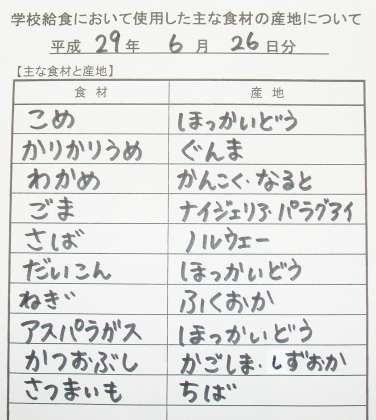 学校給食において使用した主な食材の産地について
平成 29 年 6 月 26 日分
【主な食材と産地】
食材 産地
こめ ほっかいどう
かりかりうめ ぐんま
わかめ かんこく・なると
ごま ナイジェリア・パラグアイ
さば ノルウェー
だいこん ほっかいどう
ねぎ ふくおか
アスパラガス ほっかいどう
かつおぶし かごしま・しずおか
さつまいも ちば